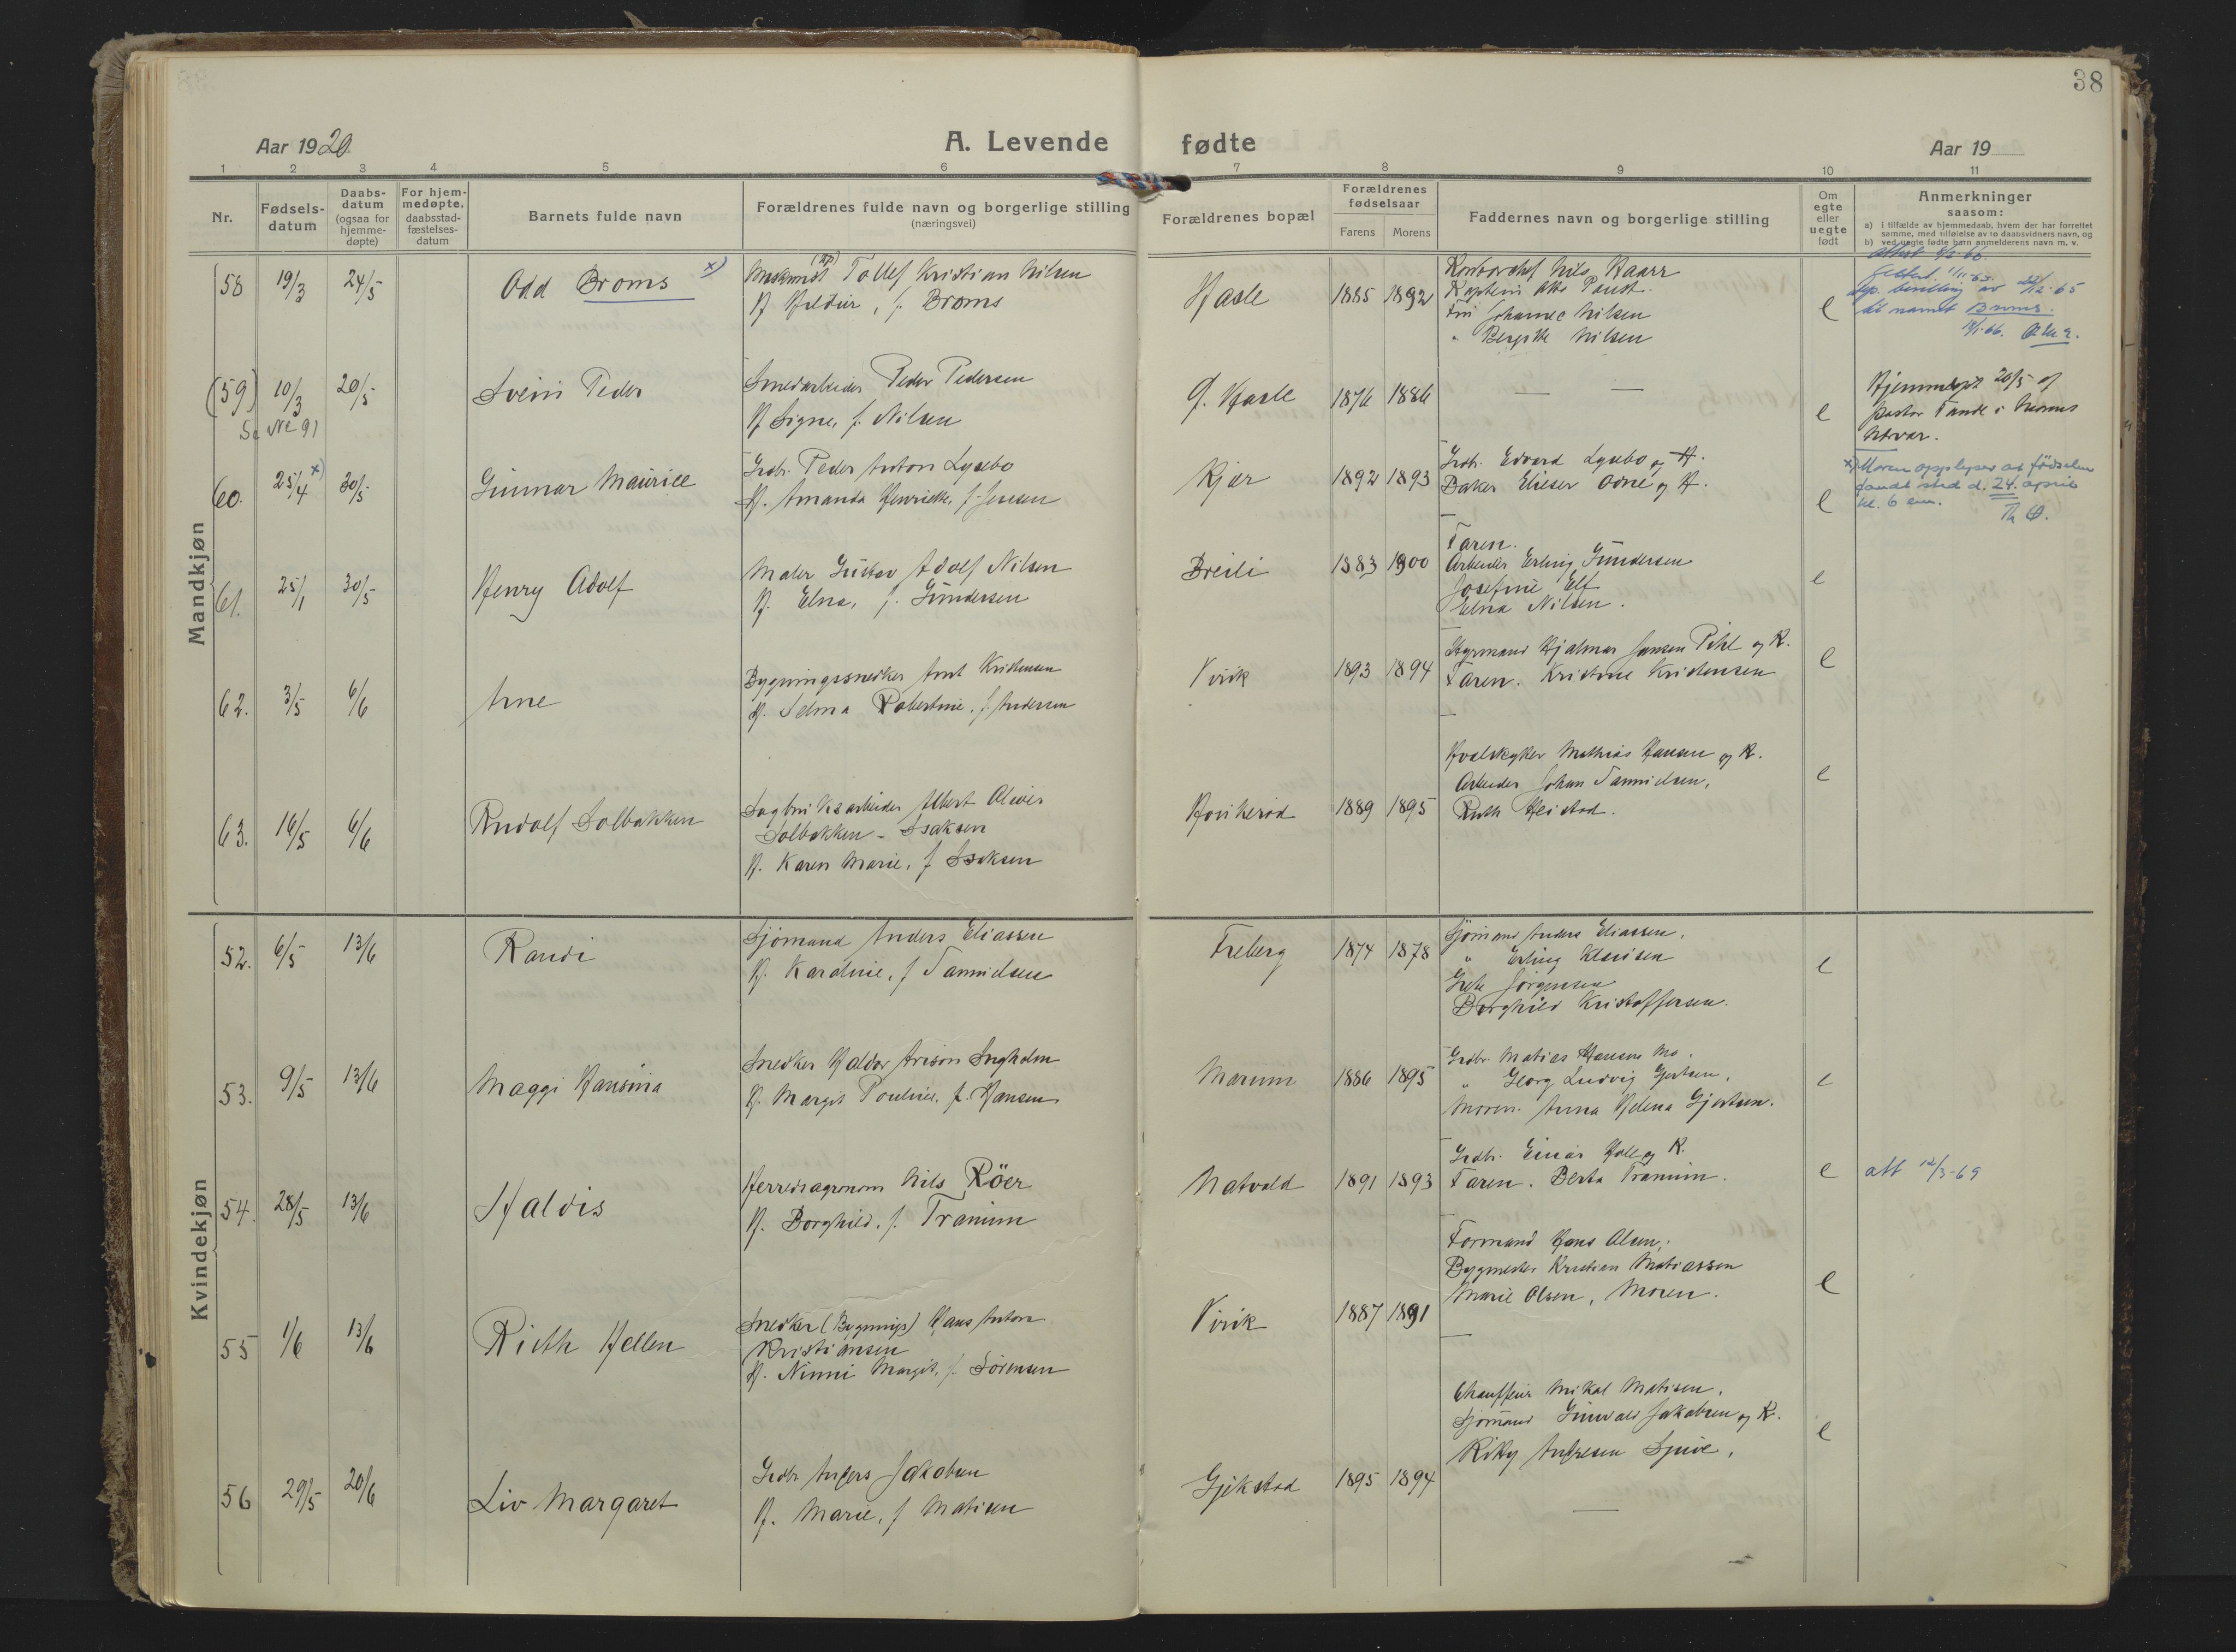 38
Aar 1920
A. Levende fødte
Aar 19
1 2 3 4 5 6 7 8 9 10 11
Nr.
Fødsels-
datum
Daabs-
datum
(ogsaa for
hjemme-
døpte)
For hjem-
medøpte,
daabsstad-
fæstelses-
datum
Barnets fulde navn
Forældrenes fulde navn og borgerlige stilling
(næringsvei)
Forældrenes bopæl
Forældrenes
fødselsaar
Farens Morens
Faddernes navn og borgerlige stilling
Om
egte
eller
uegte
født
Anmerkninger
saasom:
a) i tilfælde av hjemmedaab, hvem der har forrettet
samme, med tilføielse av to daabsvidners navn, og
b) ved uegte fødte barn anmelderens navn m. v.
Mandkjøn
58 19/3 24/5
Odd Broms x)
Tollef Kristian Nilsen
H Hildur, f. Broms
Hasle
1885 1892
Nils Kaarr
Kaptein
Johanne Nilsen
" Bergitte Nilsen
e
av 65
til navnet Broms.
(59) 10/3 20/5
Se No 91
Svein Peder
Smedarbeider Peder Pedersen
H Signe, f. Nilsen
Hasle
1876 1886
—
e
Hjemmedøpt 20/5 af
pastor Tande i
60. 25/4 x) 30/5
Gunnar Maurice
Grdbr. Peder Anton Lysebo
H. Amanda Henriette, f. Jensen
Kjær
1892 1893
Grdbr. Edvard Lysebo og H.
Baker Elieser Odne og H.
e
x) Moren opplyser at fødselen
fandt sted d. 24. april
kl. 6 em.
61. 25/1 30/5
Henry Adolf
Maler Gustav Adolf Nilsen
H. Elna, f. Gundersen
Breili
1883 1900
Faren.
Arbeider Erling Gundersen
Josefine Elf
Elna Nilsen.
e
62. 3/5 6/6
Arne
Bygningssnedker Arnt Kristensen
H. Selma Robertine, f. Andersen
Virik
1893 1894
Styrmand Hjalmar Jansen Pihl og K.
Faren. Kristine Kristensen
e
63. 16/5 6/6
Rudolf Solbakken
Sagbruksarbeider Albert Oliver
Solbakken - Isaksen
H. Karen Marie, f Isaksen
Hovikerød
1889 1895
Hvalskytter Mathias Hansen og K.
Arbeider Johan Samuelsen,
Ruth Heistad.
e
Kvindekjøn
52. 6/5 13/6
Randi
Sjømand Anders Eliassen
H. Karoline, f Samuelsen
Freberg
1874 1878
Sjømand Anders Eliassen.
" Erling Klausen
Jørgensen
Borghild Kristoffersen.
e
53. 9/5 13/6
Maggi Hansina
Snedker Haldor Arison Ingholm
H. Margit Pouline, f. Hansen
Marum
1886 1895
Grdbr. Matias Hansen
" Georg Ludvig Gjertsen,
Moren. Anna Helena Gjertsen.
e
54. 28/5 13/6
Haldis
Herredsagronom Nils Röer
H. Borghild, f. Tranum
Natvald
1891 1893
Grdbr. Einar Holl og K.
Faren. Berta Tranum.
e
att 12/3-69
55 1/6 13/6
Ruth Hellen
Snedker (Bygnings) Hans Anton
Kristiansen
H. Ninni Margit, f. Sørensen
Virik
1887 1891
Formand Hans Olsen,
Bygmester Kristian Matiassen
Marie Olsen, Moren.
e
56 29/5 20/6
Liv Margaret
Grdbr. Anders Jakobsen
H. Marie, f Matisen
Gjekstad
1895 1894
Chauffeur Mikal Matisen.
Sjømand Gunvald Jakobsen og K.
Andresen
e